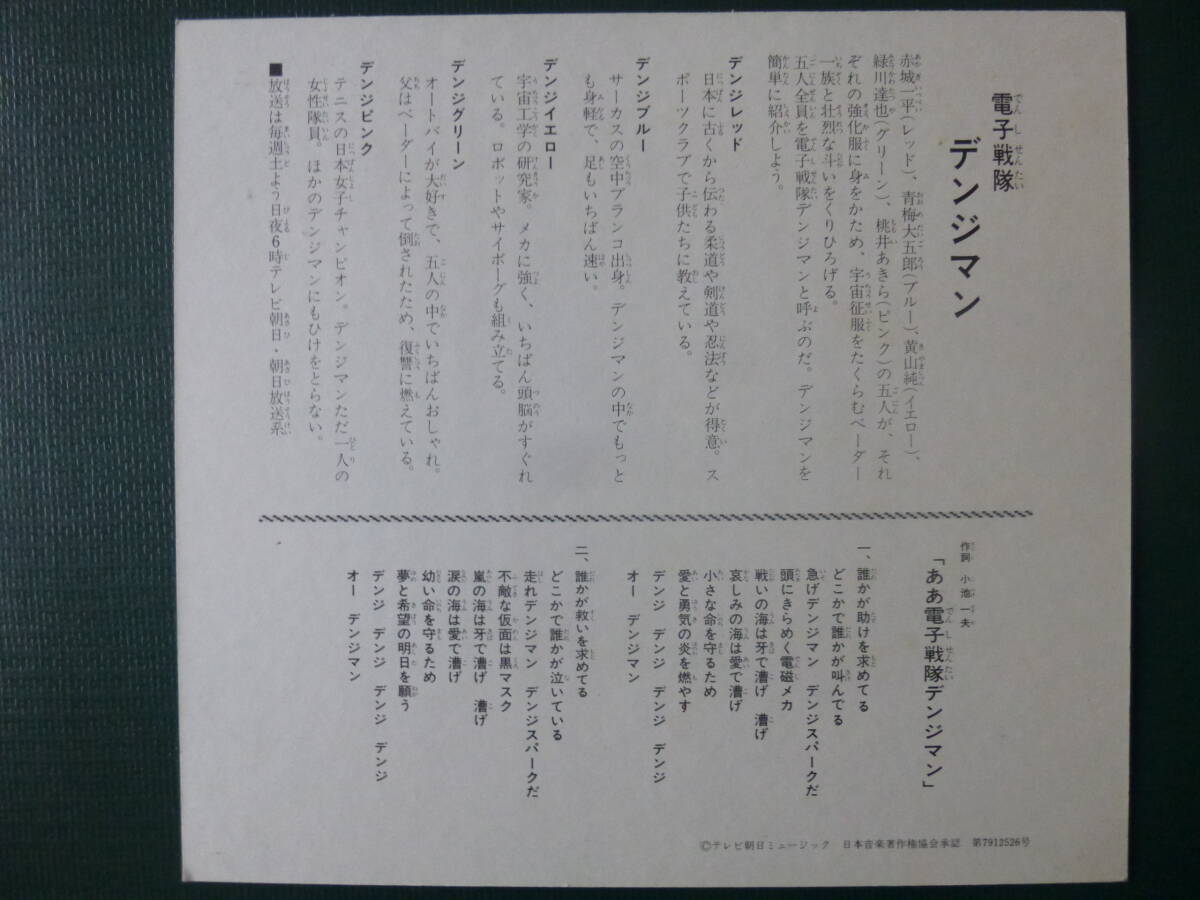 電子戦隊
デンジマン
赤城一平(レッド)、青梅大五郎(ブルー)、黄山純(イエロー)、
緑川達也(グリーン)、桃井あきら(ピンク)の五人が、それ
ぞれの強化服に身をかため、宇宙征服をたくらむベーダー
一族と壮烈な斗いをくりひろげる。
五人全員を電子戦隊デンジマンと呼ぶのだ。デンジマンを
簡単に紹介しよう。
デンジレッド
日本に古くから伝わる柔道や剣道や忍法などが得意。ス
ポーツクラブで子供たちに教えている。
デンジブルー
サーカスの空中ブランコ出身。デンジマンの中でもっと
も身軽で、足もいちばん速い。
デンジイエロー
宇宙工学の研究家。メカに強く、いちばん頭脳がすぐれ
ている。ロボットやサイボーグも組み立てる。
デンジグリーン
オートバイが大好きで、五人の中でいちばんおしゃれ。
父はベーダーによって倒されたため、復讐に燃えている。
デンジピンク
テニスの日本女子チャンピオン。デンジマンただ一人の
女性隊員。ほかのデンジマンにもひけをとらない。
■放送は毎週土よう日夜6時テレビ朝日・朝日放送系
作詞 小池一夫
「ああ電子戦隊デンジマン」
一、誰かが助けを求めてる
どこかで誰かが叫んでる
急げデンジマン デンジスパークだ
頭にきらめく電磁メカ
戦いの海は牙で漕げ 漕げ
哀しみの海は愛で漕げ
小さな命を守るため
愛と勇気の炎を燃やす
デンジ デンジ デンジ デンジ
オー デンジマン
二、誰かが救いを求めてる
どこかで誰かが泣いている
走れデンジマン デンジスパークだ
不敵な仮面は黒マスク
嵐の海は牙で漕げ 漕げ
涙の海は愛で漕げ
幼い命を守るため
夢と希望の明日を願う
デンジ デンジ デンジ デンジ
オー デンジマン
©テレビ朝日ミュージック 日本音楽著作権協会承認 第7912526号